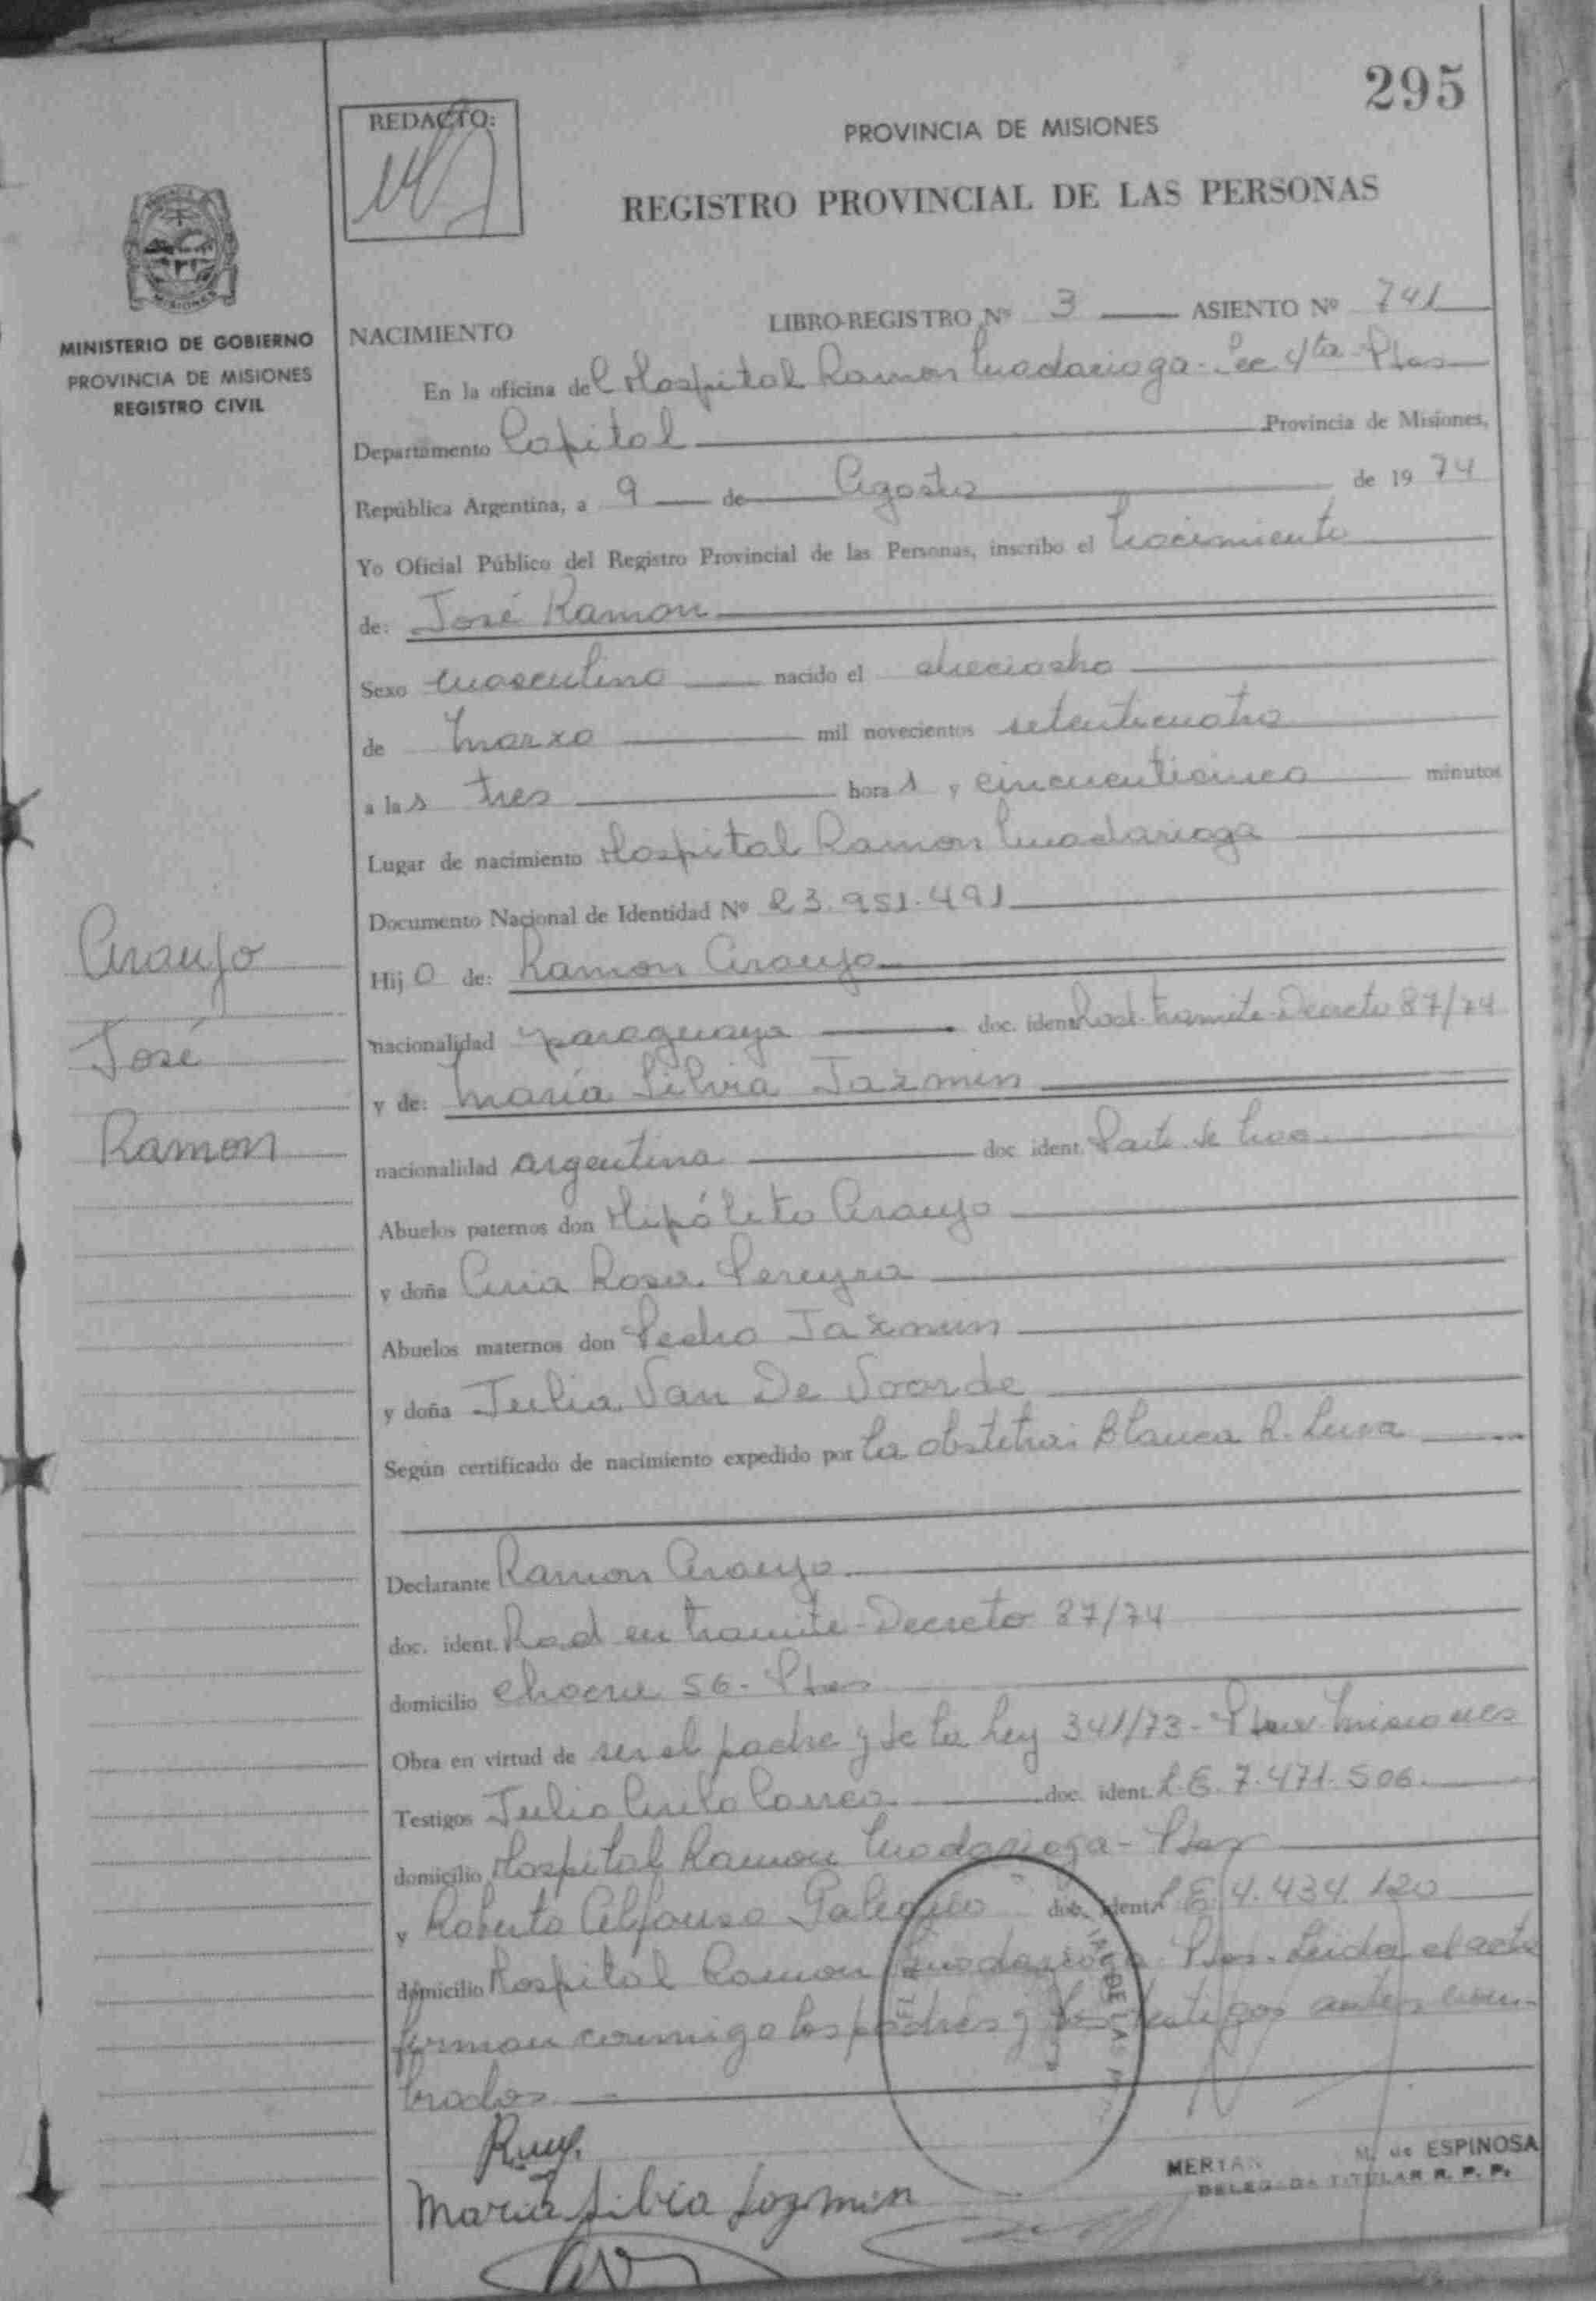 295
REDACTO:
PROVINCIA DE MISIONES
REGISTRO PROVINCIAL DE LAS PERSONAS
MISIONES
MINISTERIO DE GOBIERNO
PROVINCIA DE MISIONES
REGISTRO CIVIL
NACIMIENTO LIBRO-REGISTRO Nº 3 ASIENTO Nº 741
En la oficina del Hospital Ramon Madariaga - Sec 4ta - Pdas
Departamento Capital Provincia de Misiones,
República Argentina, a 9 de Agosto de 19 74
Yo Oficial Público del Registro Provincial de las Personas, inscribo el nacimiento
de: José Ramon
Sexo masculino nacido el dieciocho
de marzo mil novecientos setenticuatro
a las tres horas y cincuenticinco minutos
Lugar de nacimiento Hospital Ramon Madariaga
Documento Nacional de Identidad Nº 23.951.491
Araujo
Hijo de: Ramon Araujo
José
nacionalidad paraguaya doc. ident. Rad. tramite - Decreto 87/74
y de: María Silvia Jazmin
Ramon
nacionalidad argentina doc. ident. Parte de Nac.
Abuelos paternos don Hipólito Araujo
y doña Ana Rosa Pereyra
Abuelos maternos don Pedro Jazmin
y doña Julia Van De Voorde
Según certificado de nacimiento expedido por La obstetra: Blanca R. Luna
Declarante Ramon Araujo
doc. ident. Rad en tramite - Decreto 87/74
domicilio chacra 56 - Pdas
Obra en virtud de ser el padre y de la Ley 341/73 - Pdas Misiones
Testigos Julio doc. ident. L.E. 7.471.506
domicilio Hospital Ramon Madariaga - Pdas
y Roberto Alfonso doc. ident. L.E. 4.434.120
domicilio Hospital Ramon Madariaga - Pdas. Leida el acta
firman conmigo los padres y los testigos antes nom-
brados
Maria Silvia Jazmin
M. de ESPINOSA
DELEGADA TITULAR R. P. P.